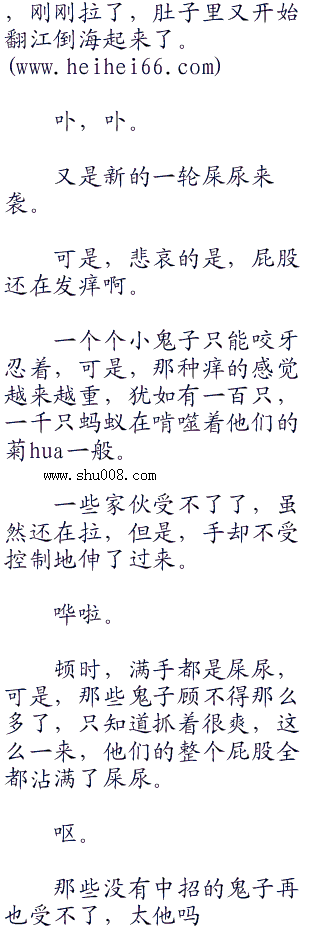 ，刚刚拉了，肚子里又开始
翻江倒海起来了。
(www.heihei66.com)
卟，卟。
又是新的一轮屎尿来
袭。
可是，悲哀的是，屁股
还在发痒啊。
一个个小鬼子只能咬牙
忍着，可是，那种痒的感觉
越来越重，犹如有一百只，
一千只蚂蚁在啃噬着他们的
菊hua一般。
www.shu008.com
一些家伙受不了了，虽
然还在拉，但是，手却不受
控制地伸了过来。
哗啦。
顿时，满手都是屎尿，
可是，那些鬼子顾不得那么
多了，只知道抓着很爽，这
么一来，他们的整个屁股全
都沾满了屎尿。
呕。
那些没有中招的鬼子再
也受不了，太他吗